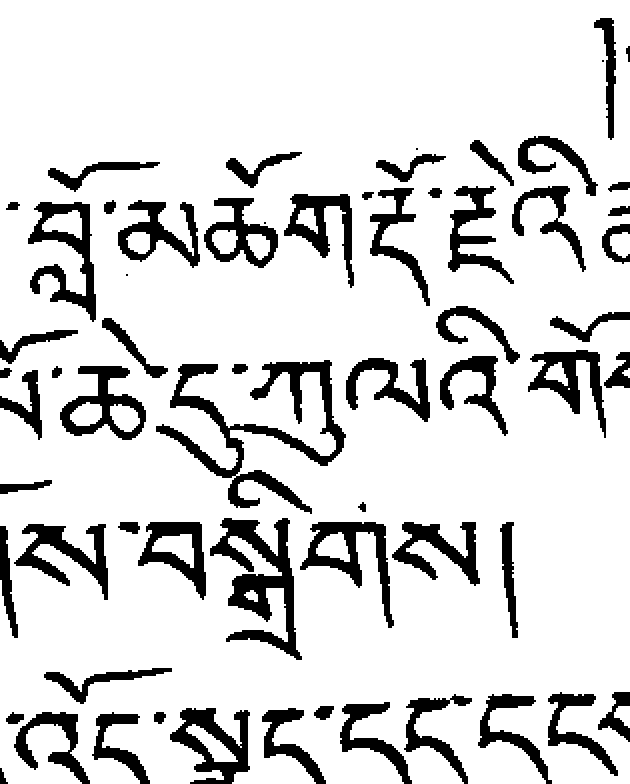 །
་བློ་མཆོག་རྡོ་རྗེའི
པོ་ཆེ་དུ་ཀུ་ལའི་གོས
གོས་བསྒྲིགས།
་འོད་སྣང་དང་དངས